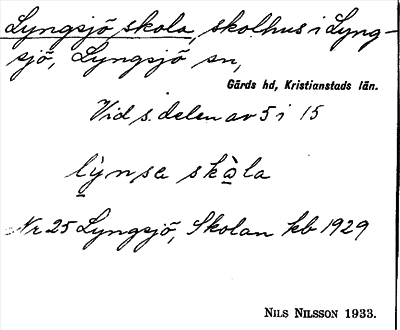 Lyngsjö skola, skolhus i Lyng-
sjö, Lyngsjö sn,
Gärds hd, Kristianstads län.
Vid s. delen av 5 i 15
lỳnsa skà̱la
Nr 25 Lyngsjö, Skolan kb 1929
NILS NILSSON 1933.